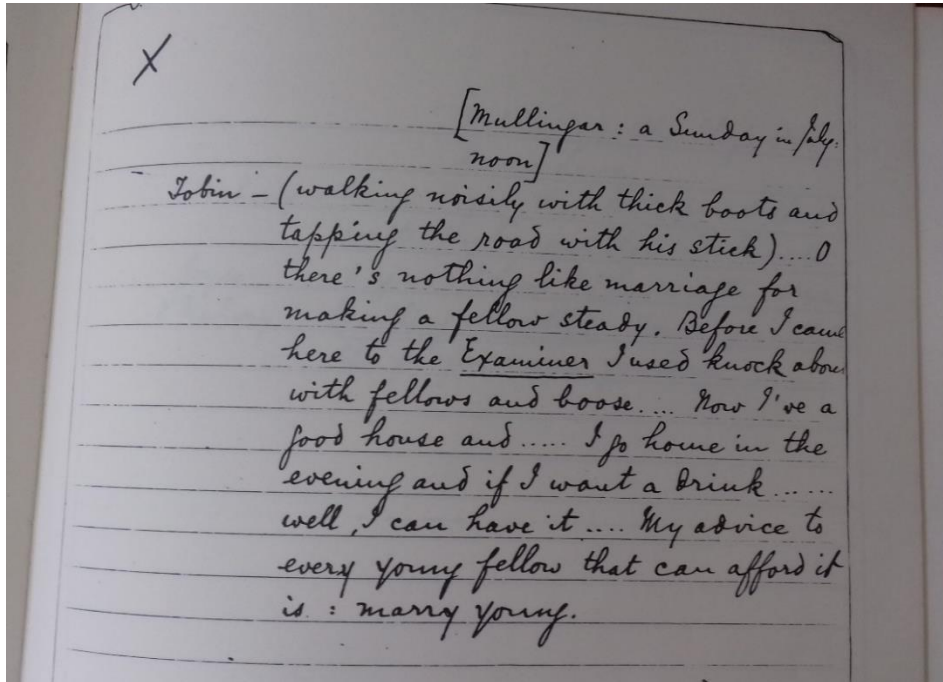 X
[Mullingar : a Sunday in July:
noon]
Tobin – (walking noisily with thick boots and
tapping the road with his stick)....O
there's nothing like marriage for
making a fellow steady. Before I came
here to the Examiner I used knock about
with fellows and boose.... Now I've a
good house and ..... I go home in the
evening and if I want a drink ......
well, I can have it .... My advice to
every young fellow that can afford it
is : marry young.